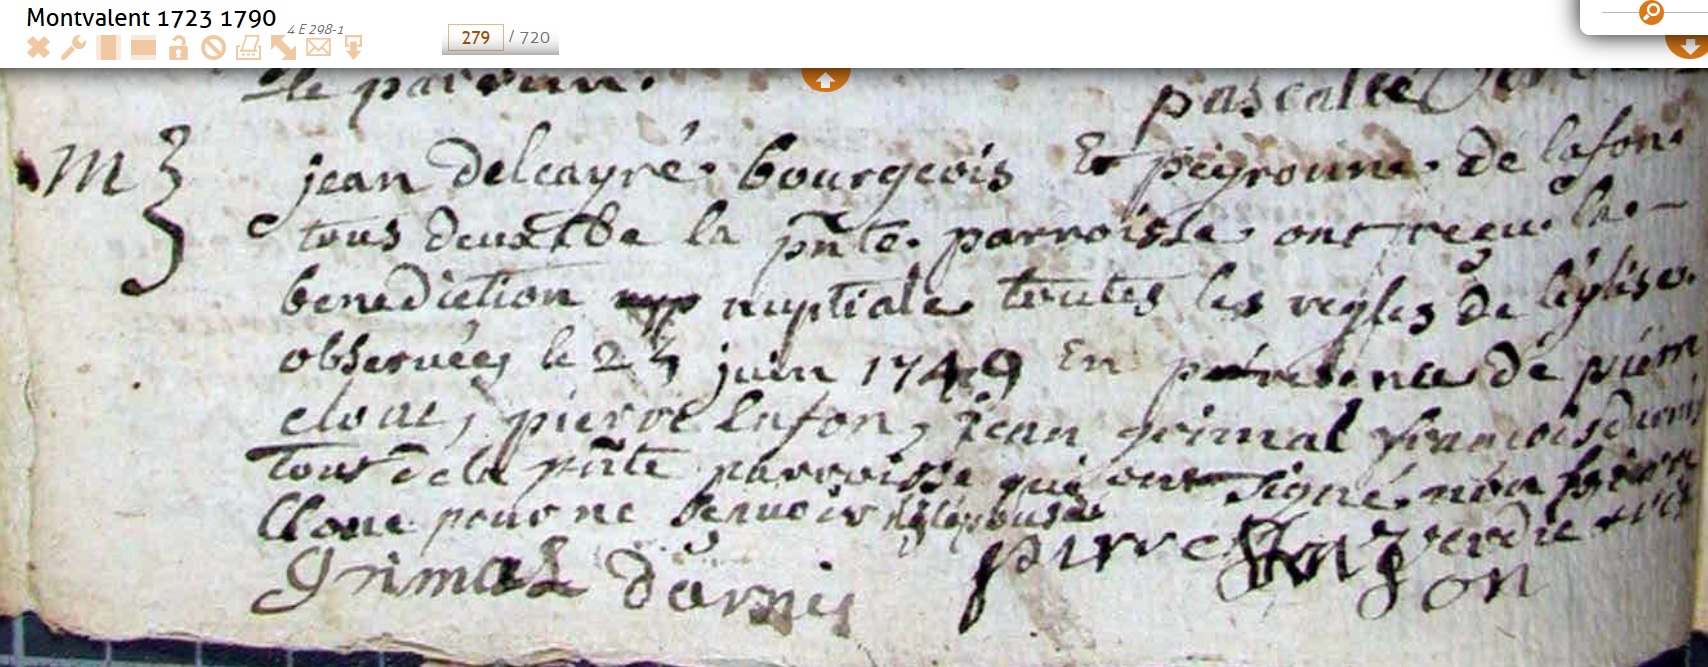 Montvalent 1723 1790
4 E 298-1
279 / 720
pascalle
M
jean delcayré. bourgeois Et peyronne. de lafon.
tous deux de la pñte. parroisse ont recu la
benediction nuptiale toutes les regles de l'eglise.
observées le 24 juin 1749 En presence de pierre
cloue, pierre lafon, jean grimal françois darnis
tous de la pñte parroisse qui ont signé non pierre
Cloue pour ne scavoir ny l'epouse
Grimal darnis pierre lafon